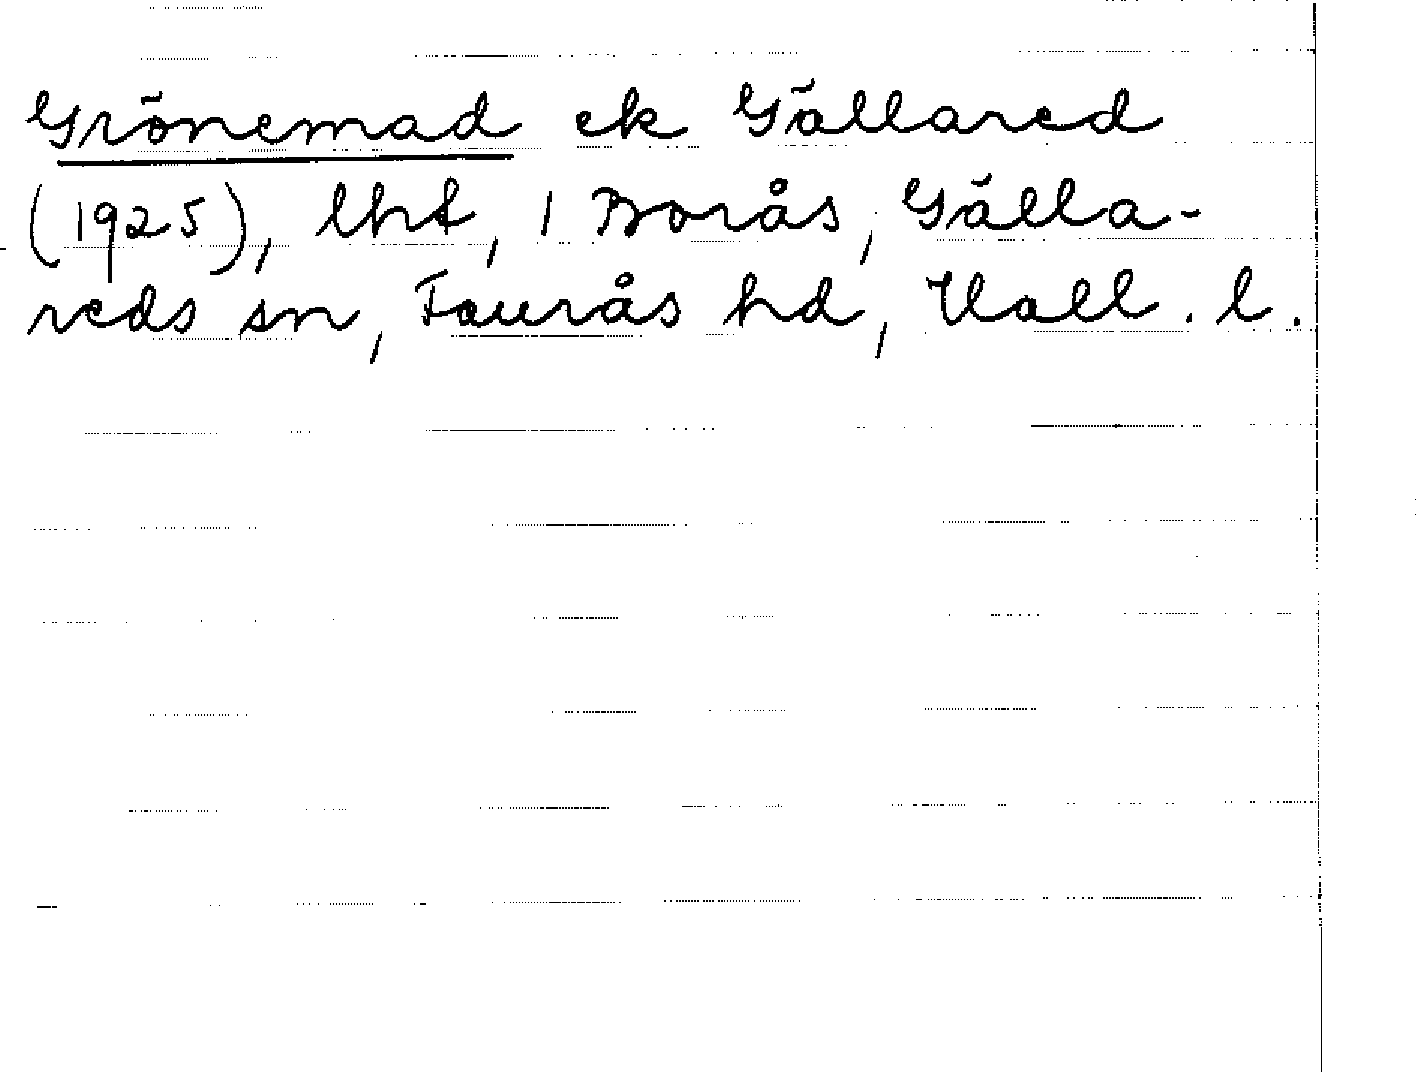 Grönemad ek Gällared
(1925), lht, 1 Borås, Gälla-
reds sn, Faurås hd, Hall. l.